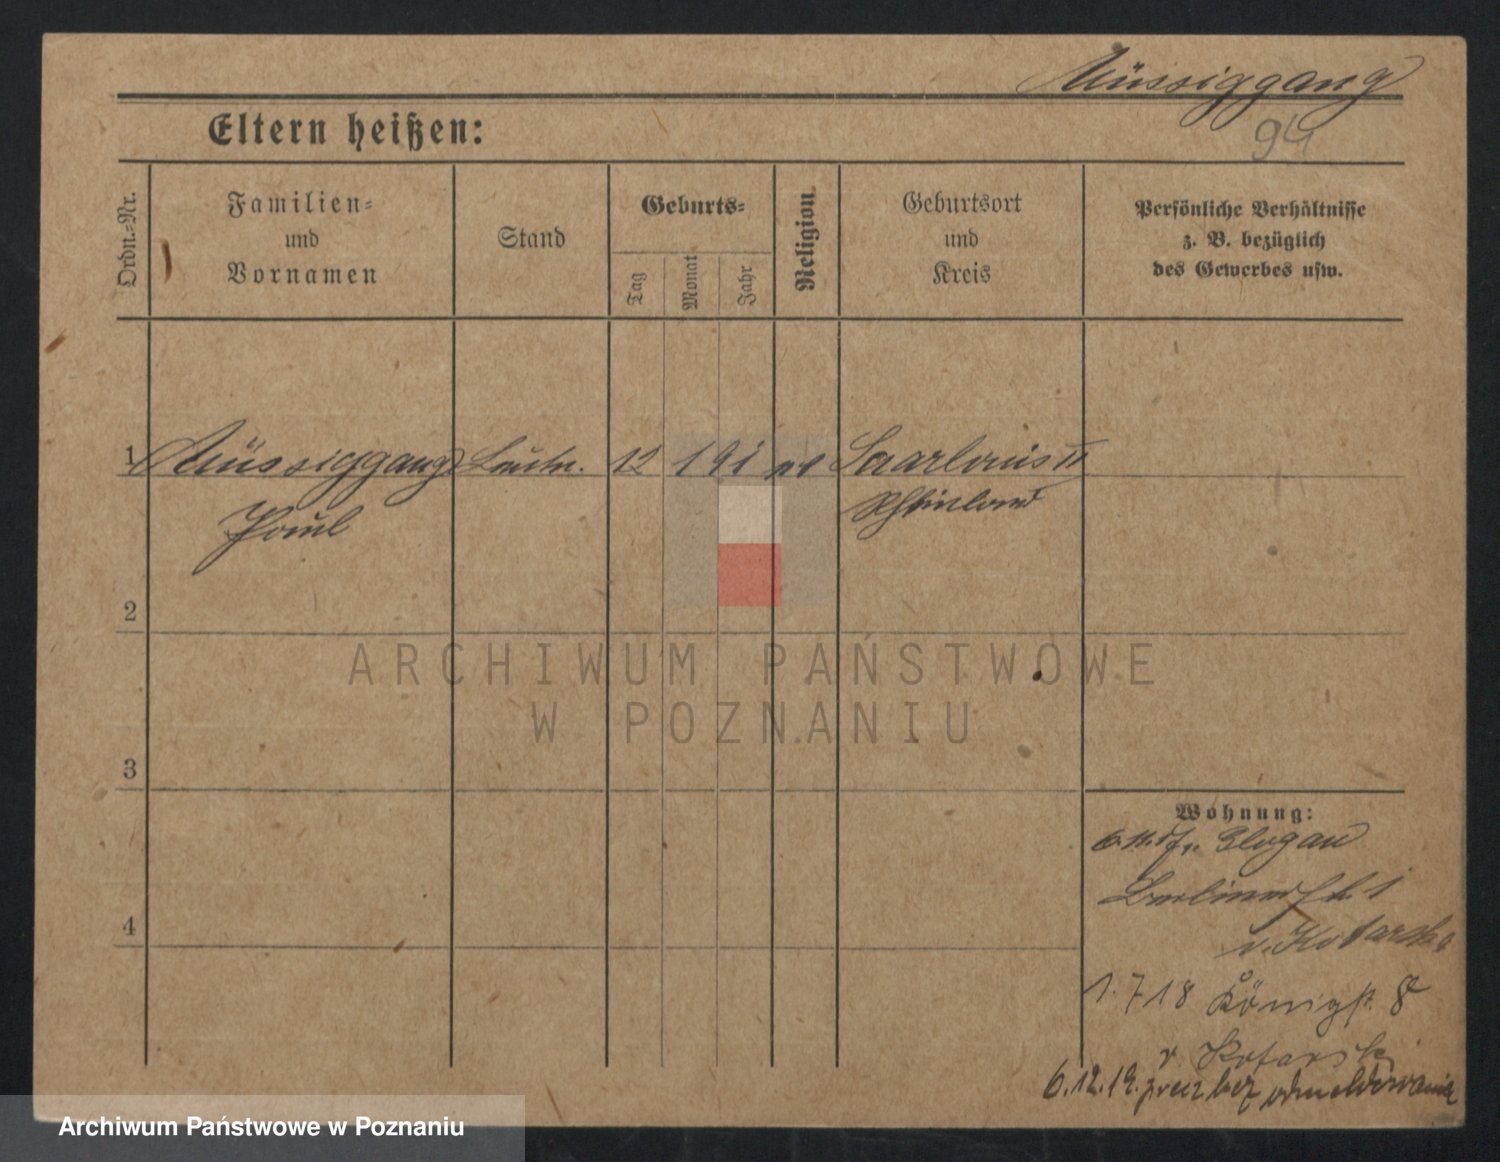 Müssiggang
94
Eltern heißen:
Ordn.-Nr.
Familien-
und
Vornamen
Stand
Geburts-
Tag
Monat
Jahr
Religion
Geburtsort
und
Kreis
Persönliche Verhältnisse
z. B. bezüglich
des Gewerbes usw.
1 Müssiggang Leutn. 12 1 91 Saarlouis
Paul Rheinland
2
3
4
Wohnung:
6.11.17 v. Glogau
Berlinerstr. 1
v. Kotarski
1.7 18 Königstr. 8
v Kotarski
6.12.19. precz bez odmeldowania
ARCHIWUM PAŃSTWOWE
W POZNANIU
Archiwum Państwowe w Poznaniu